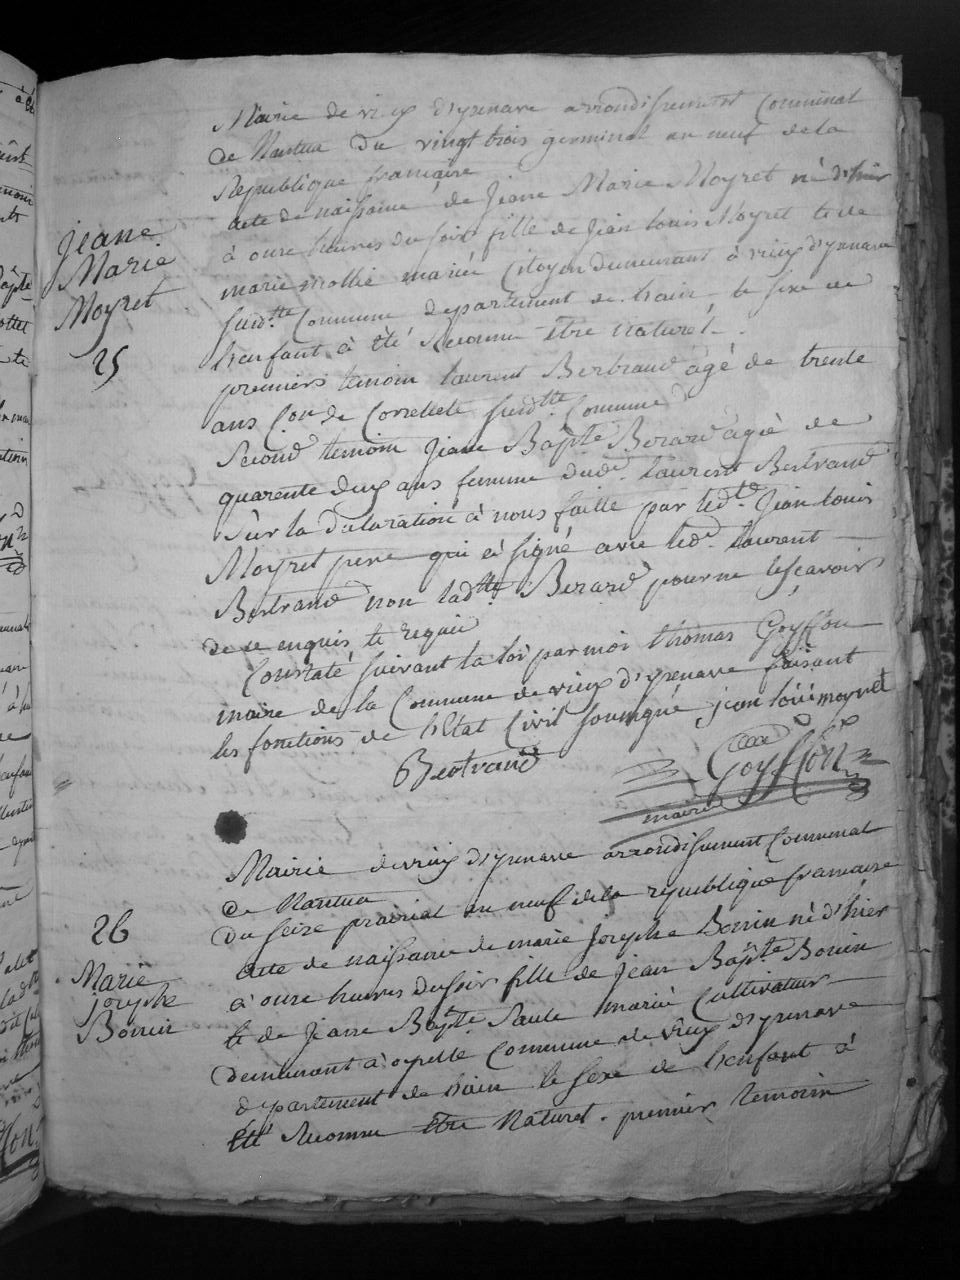 Mairie de vieux d'ysenave arrondissement Communal
de Nantua du vingt trois germinal an neuf de la
Republique francaise
Jeane
Marie
Moyret
25
acte de naissance de Jeane Marie Moyret né d'hier
à onze heures du soir fille de Jean Louis Moyret et de
marie mollie mariée Citoyen demeurant à vieux d'ysenave
susd.tte Commune departement de l'ain, le sexe de
l'enfant à été Reconnu être naturel.
premiers temoin laurent Bertrand âgé de trente
ans Con de susd.tte Commune
Second temoin Jeane Bapte Berard âgée de
quarente deux ans femme dud. laurent Bertrand
Sur la declaration à nous faitte par led.t Jean louis
Moyret pere qui à signé avec led. laurent
Bertrand non lad.tte Berard pour ne le sçavoir
de ce enquis et requis
Constaté suivant la loi par moi thomas Goyffon
maire de la Commune de vieux d'ysenave faisant
les fonctions de l'Etat Civil soussigné jean loüi moyret
Bertrand
Goyffon
maire
Mairie de vieux d'ysenave arrondissement Communal
de Nantua
du seize prairial an neuf de la republique francaise
26
Marie
josephe
Bonin
acte de naissance de marie Josephe Bonin né d'hier
à onze heures du soir fille de Jean Bapte Bonin
et de Jeane Bapte mariée Cultivateur
demeurant à Commune de vieux d'ysenave
departement de l'ain le sexe de l'enfant à
été Reconnu être Naturel. premier temoin